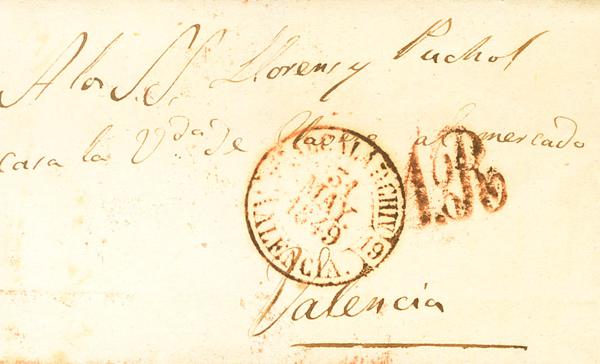 A los S.S. Llorens y Puchol
casa la V.da de al mercado
31
MAY.
1849
VALENCIA.
1R.
Valencia